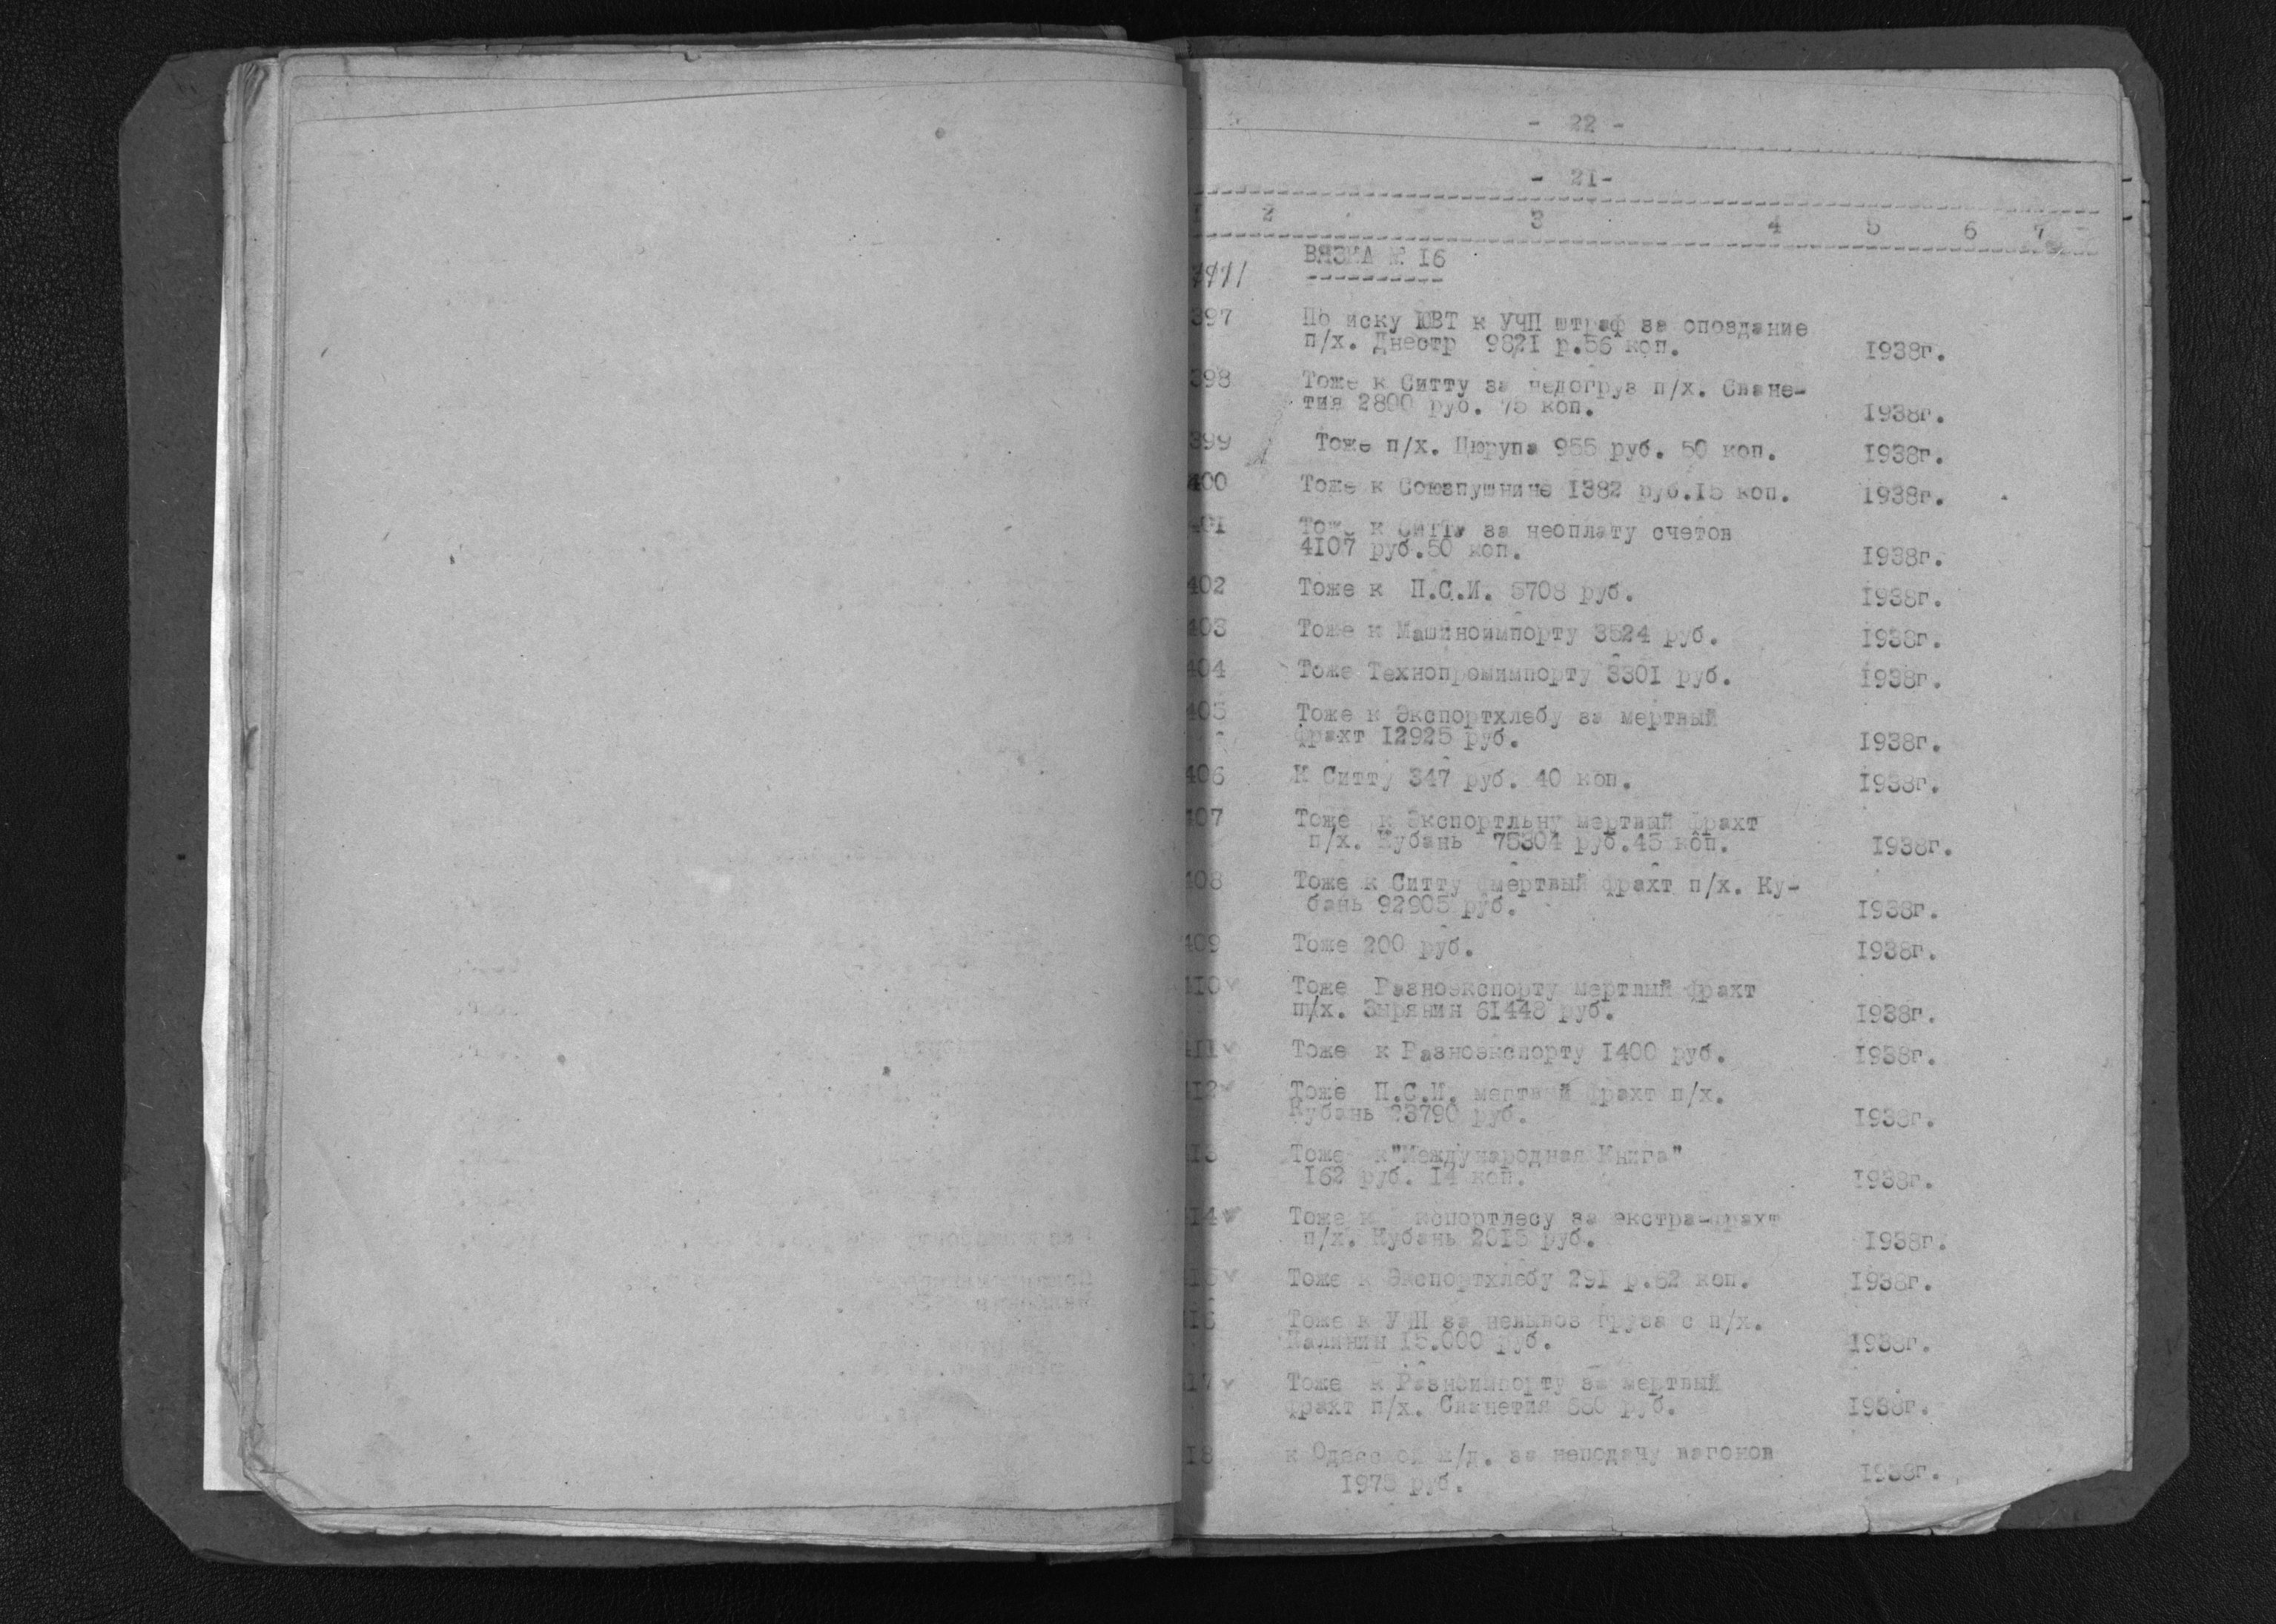 - 22 -
- 21-
2 3 4 5 6 7
ВЯЗКА № 16
397 По иску ЮВТ к УЧП штраф за опоздание
п/х. Днестр 9821 р.56 коп. 1938г.
398 Тоже к Ситту за недогруз п/х. Сване-
тия 2890 руб. 75 коп. 1938г.
399 Тоже п/х. Цюрупа 955 руб. 50 коп. 1938г.
400 Тоже к Союзпушнине 1382 руб.15 коп. 1938г.
401 Тоже к Ситту за неоплату счетов
4107 руб.50 коп. 1938г.
402 Тоже к П.С.И. 5708 руб. 1938г.
403 Тоже к Машиноимпорту 3524 руб. 1938г.
404 Тоже Технопромимпорту 3301 руб. 1938г.
405 Тоже к Экспортхлебу за мертвый
фрахт 12925 руб. 1938г.
406 К Ситту 347 руб. 40 коп. 1938г.
407 Тоже к Экспортльну мертвый фрахт
п/х. Кубань 75304 руб.45 коп. 1938г.
408 Тоже к Ситту мертвый фрахт п/х. Ку-
бань 92905 руб. 1938г.
409 Тоже 200 руб. 1938г.
410 Тоже Разноэкспорту мертвый фрахт
п/х. Зырянин 61448 руб. 1938г.
411 Тоже к Разноэкспорту 1400 руб. 1938г.
412 Тоже П.С.И. мертвый фрахт п/х.
Кубань 23790 руб. 1938г.
413 Тоже к "Международная Книга"
162 руб. 14 коп. 1938г.
414 Тоже к Экспортлесу за екстра-фрахт
п/х. Кубань 2015 руб. 1938г.
415 Тоже к Экспортхлебу 291 р.82 коп. 1938г.
416 Тоже к УЧП за невывоз груза с п/х.
Калинин 15.000 руб. 1938г.
417 Тоже к Разноимпорту за мертвый
фрахт п/х. Сванетия 880 руб. 1938г.
418 к Одесской ж/д. за неподачу вагонов
1975 руб. 1938г.